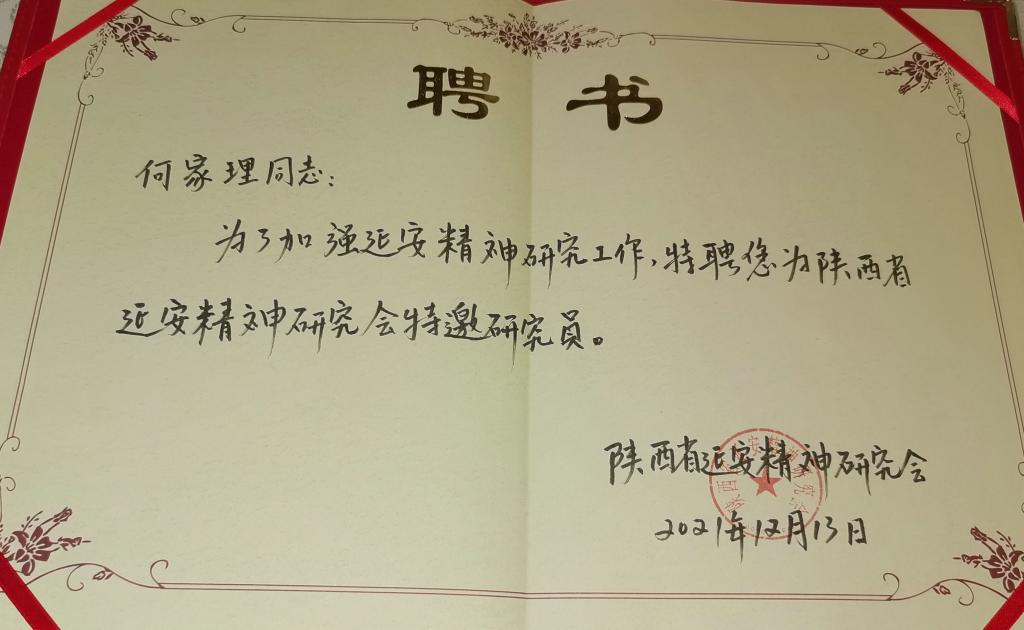 聘书
何家理同志：
为了加强延安精神研究工作，特聘您为陕西省
延安精神研究会特邀研究员。
陕西省延安精神研究会
2021年12月13日